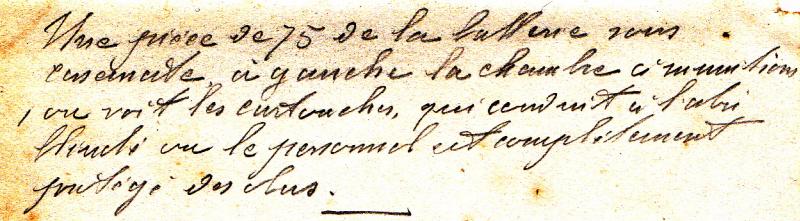 Une pièce de 75 de la batterie sous
casemate, à gauche la chambre à munitions
, ou voit les cartouches, qui conduit à l'abri
blindé ou le personnel est complètement
protégé des obus.